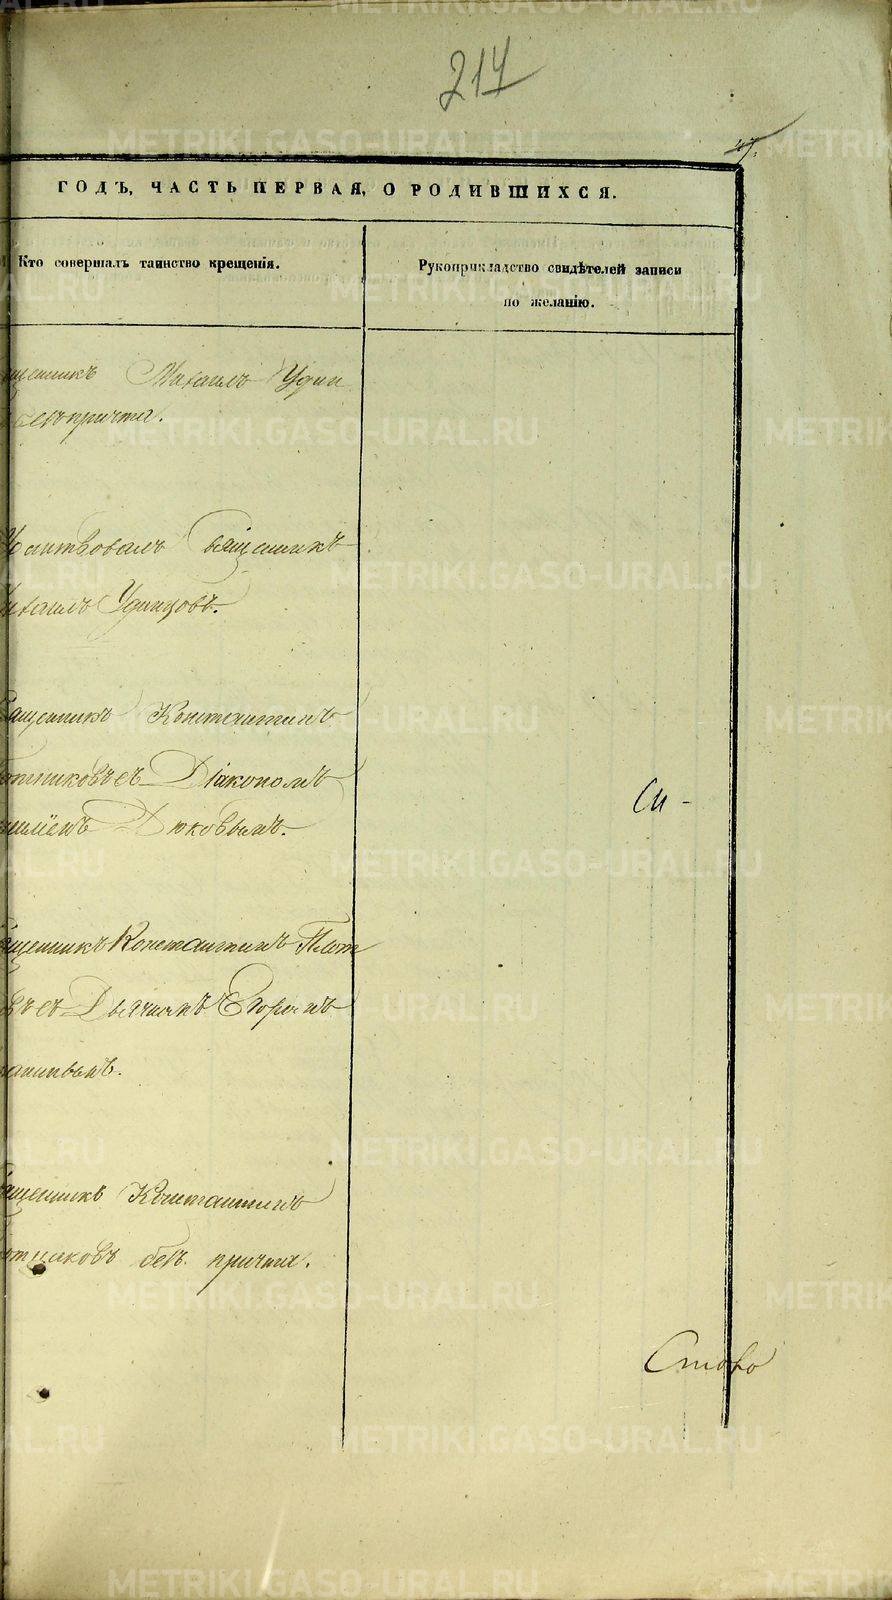 217
47.
ГОДЪ, ЧАСТЬ ПЕРВАЯ, О РОДИВШИХСЯ.
Кто совершалъ таинство крещенія.
Рукоприкладство свидѣтелей записи
по желанію.
щенникъ Михаилъ Удин
безъ причта.
Молитвовалъ Священникъ
Михаилъ Удинцовъ.
Священникъ Константинъ
отниковъ съ Діакономъ
Дюковымъ.
Си-
Священникъ Константинъ Плот
въ съ Дьячкомъ Егоромъ
Священникъ Константинъ
отниковъ безъ причта.
Сторо
METRIKI.GASO-URAL.RU